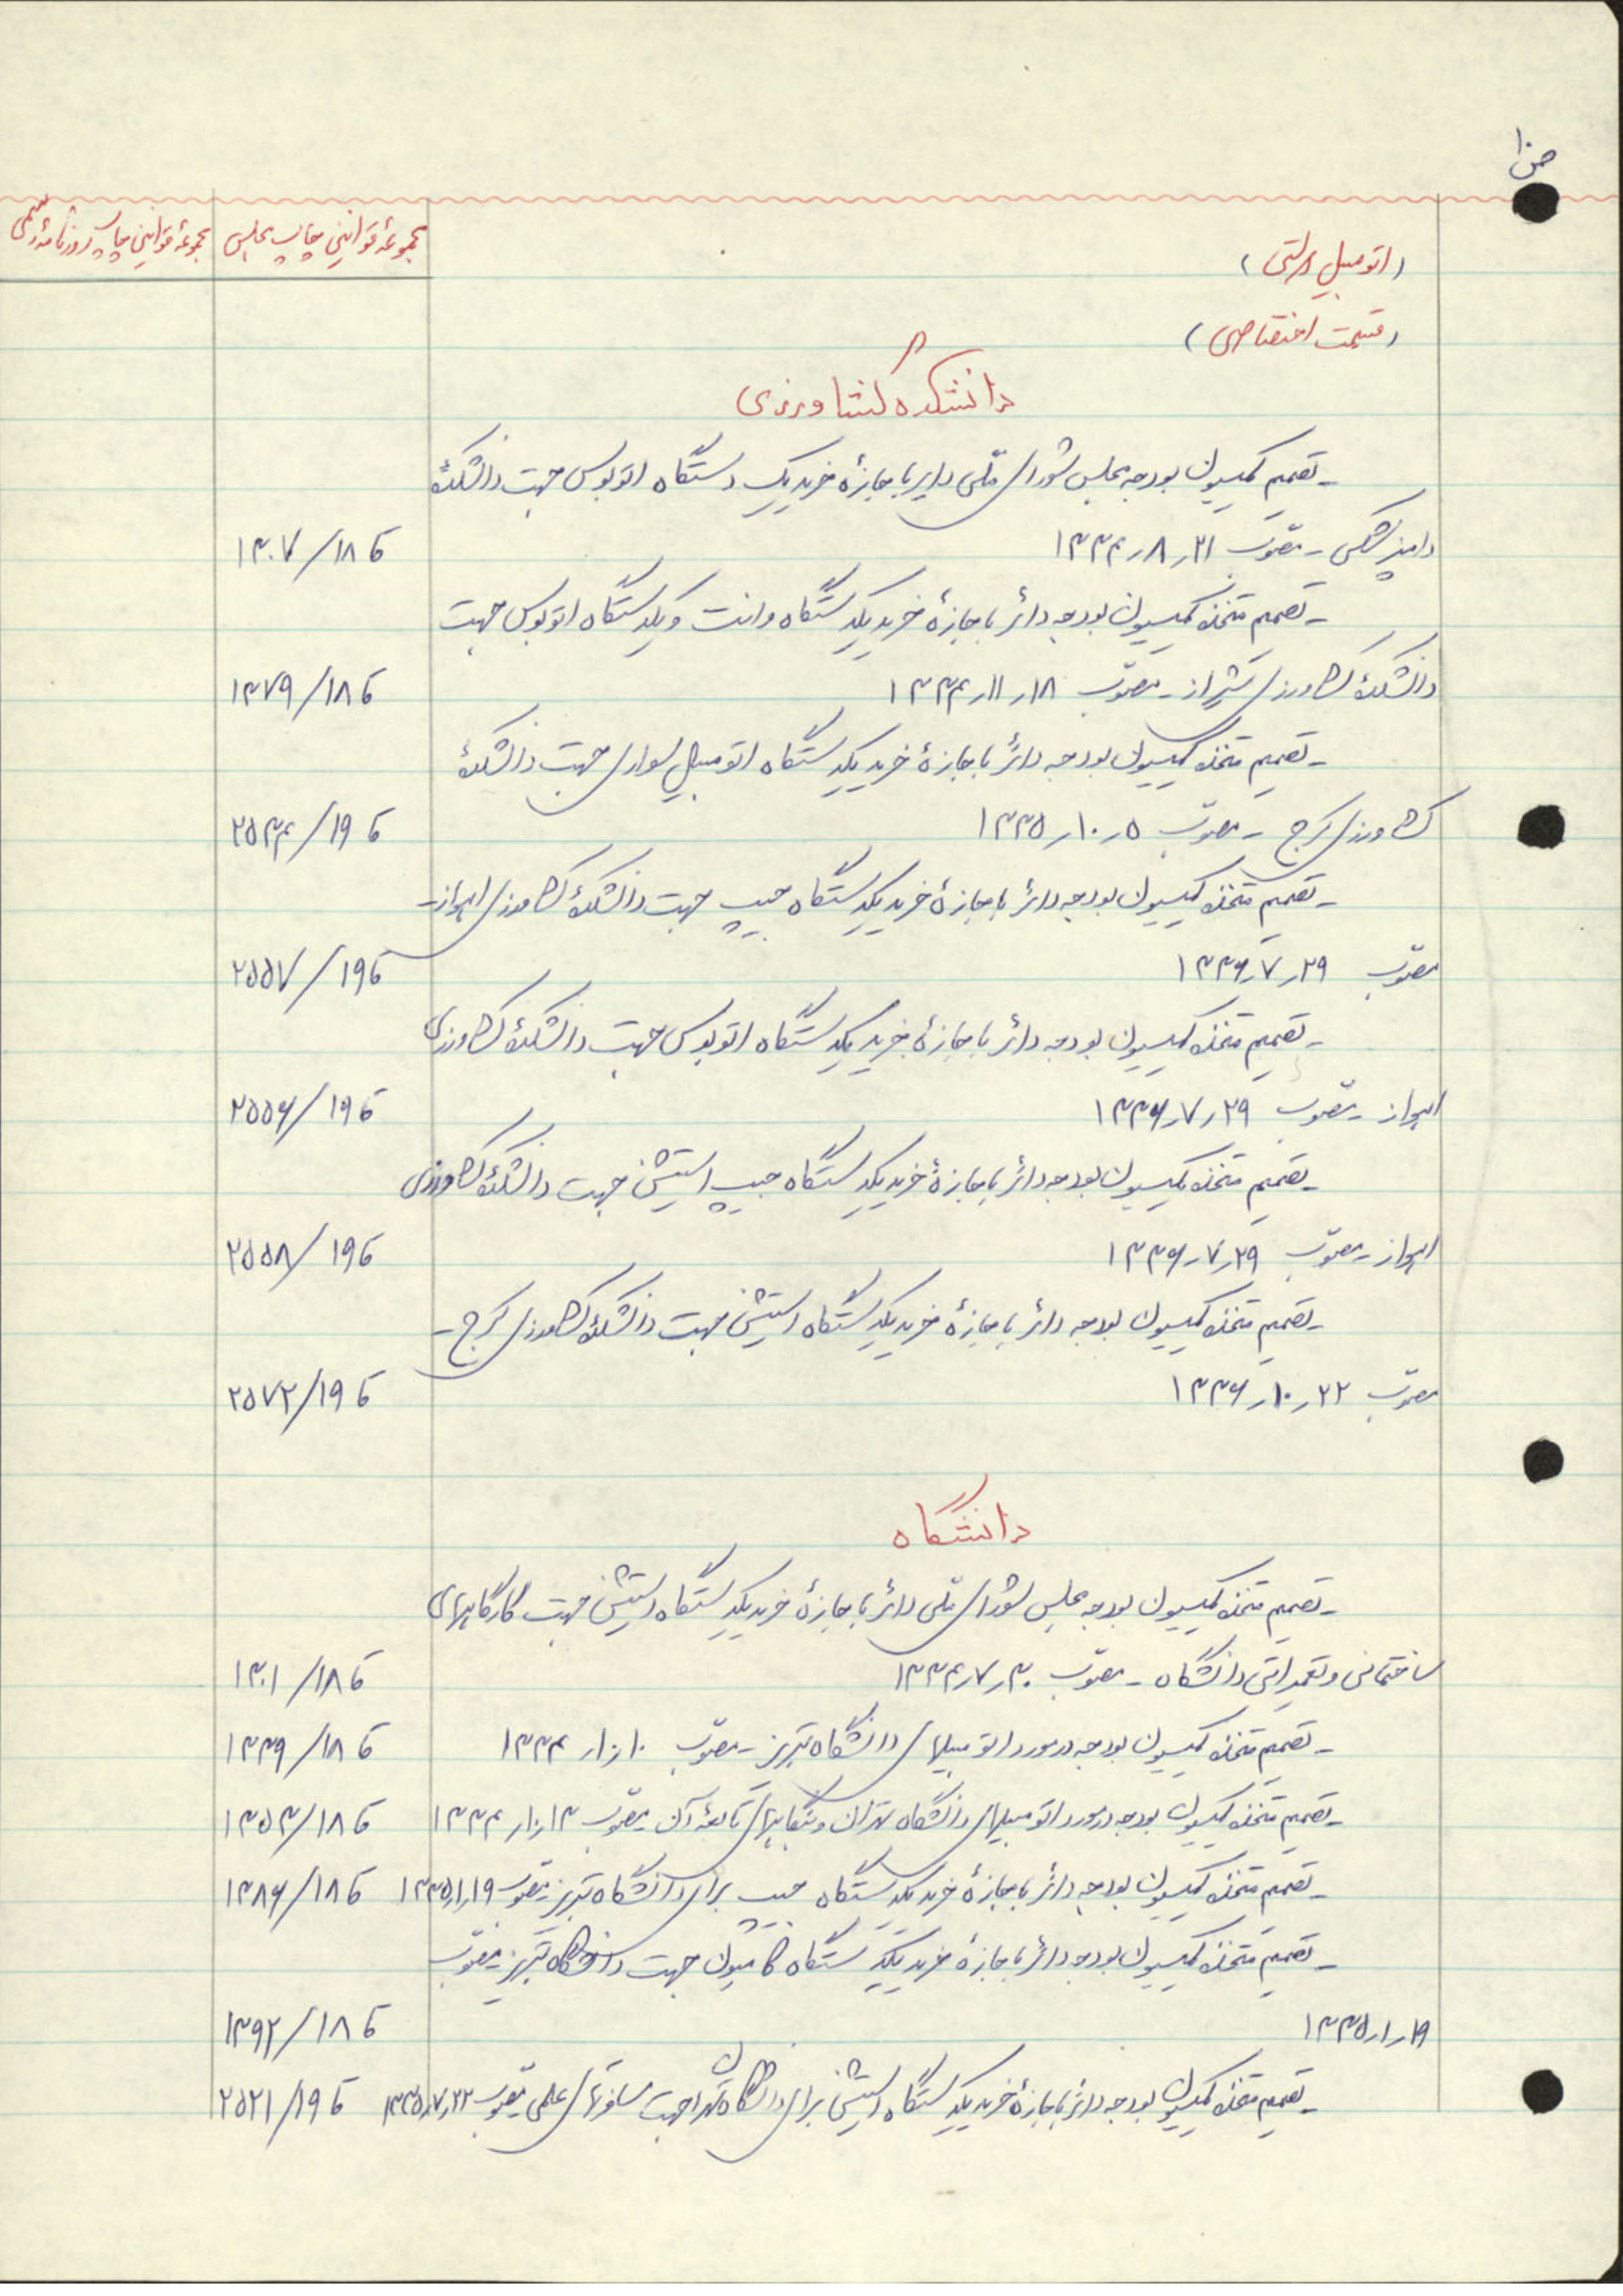 ص ۱۰
مجموعهٔ قوانین چاپ مجلس
مجموعهٔ قوانین چاپ روزنامهٔ رسمی
(اتومبیل دولتی)
(قسمت اختصاصی)
دانشکده کشاورزی
ـ تصمیم کمیسیون بودجه مجلس شورای ملّی دایر باجازهٔ خرید یک دستگاه اتوبوس جهت دانشکدهٔ
دامپزشکی ـ مصوّب ۲۱ر۸ر۱۳۳۴
ک ۱۸/۱۳۰۷
ـ تصمیم متخذه کمیسیون بودجه دائر باجازهٔ خرید یکدستگاه وانت و یکدستگاه اتوبوس جهت
دانشکدهٔ کشاورزی شیراز ـ مصوّب ۱۸ر۱۱ر۱۳۳۴
ک ۱۸/۱۳۷۹
ـ تصمیم متخذه کمیسیون بودجه دائر باجازهٔ خرید یکدستگاه اتومبیل سواری جهت دانشکدهٔ
کشاورزی کرج ـ مصوّب ۵ر۱۰ر۱۳۳۵
ک ۱۹/۲۵۳۴
ـ تصمیم متخذه کمیسیون بودجه دائر باجازهٔ خرید یکدستگاه جیپ جهت دانشکدهٔ کشاورزی اهواز ـ
مصوّب ۲۹ر۷ر۱۳۳۶
ک ۱۹/۲۵۵۷
ـ تصمیم متخذه کمیسیون بودجه دائر باجازهٔ خرید یکدستگاه اتوبوس جهت دانشکدهٔ کشاورزی
اهواز ـ مصوّب ۲۹ر۷ر۱۳۳۶
ک ۱۹/۲۵۵۶
ـ تصمیم متخذه کمیسیون بودجه دائر باجازهٔ خرید یکدستگاه جیپ استیشن جهت دانشکدهٔ کشاورزی
اهواز ـ مصوّب ۲۹ر۷ر۱۳۳۶
ک ۱۹/۲۵۵۸
ـ تصمیم متخذه کمیسیون بودجه دائر باجازهٔ خرید یکدستگاه استیشن جهت دانشکدهٔ کشاورزی کرج ـ
مصوّب ۲۲ر۱۰ر۱۳۳۶
ک ۱۹/۲۵۷۲
دانشگاه
ـ تصمیم متخذه کمیسیون بودجه مجلس شورای ملّی دائر باجازهٔ خرید یکدستگاه استیشن جهت کارگاههای
ساختمانی و تعمیراتی دانشگاه ـ مصوّب ۳۰ر۷ر۱۳۳۴
ک ۱۸/۱۳۰۱
ـ تصمیم متخذه کمیسیون بودجه در مورد اتومبیلهای دانشگاه تبریز ـ مصوّب ۱۰ر۱۰ر۱۳۳۴
ک ۱۸/۱۳۳۹
ـ تصمیم متخذه کمیسیون بودجه در مورد اتومبیلهای دانشگاه تهران و بنگاههای تابعهٔ آن ـ مصوّب ۱۳ر۱۰ر۱۳۳۴
ک ۱۸/۱۳۵۳
ـ تصمیم متخذه کمیسیون بودجه دائر باجازهٔ خرید یکدستگاه جیپ برای دانشگاه تبریز ـ مصوّب ۱۹ر۱ر۱۳۳۵
ک ۱۸/۱۳۸۶
ـ تصمیم متخذه کمیسیون بودجه دائر باجازهٔ خرید یکدستگاه کامیون جهت دانشگاه تبریز ـ مصوّب
۱۹ر۱ر۱۳۳۵
ک ۱۸/۱۳۹۲
ـ تصمیم متخذه کمیسیون بودجه دائر باجازهٔ خرید یکدستگاه استیشن برای دانشگاه تهران جهت مسافرتهای علمی ـ مصوّب ۲۲ر۷ر۱۳۳۵
ک ۱۹/۲۵۲۱